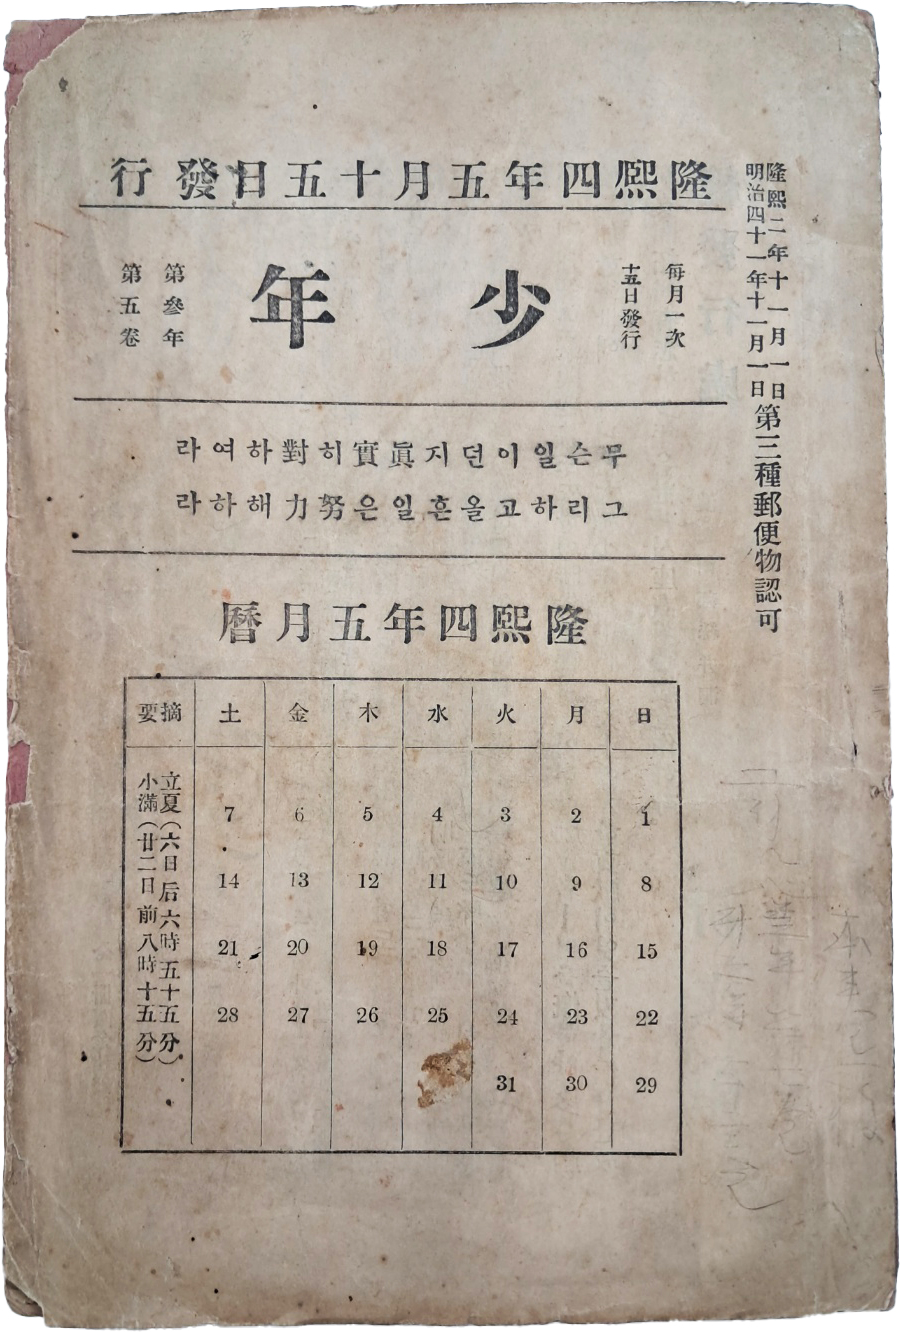 隆熙二年十一月一日
明治四十一年十一月一日
第三種郵便物認可
隆熙四年五月十五日發行
每月一次
十五日發行
少年
第參年
第五卷
무슨일이던지眞實히對하여라
그리하고올흔일은努力해하라
隆熙四年五月曆
日 月 火 水 木 金 土 摘要
1 2 3 4 5 6 7
8 9 10 11 12 13 14
15 16 17 18 19 20 21
22 23 24 25 26 27 28
29 30 31
立夏(六日后六時五十五分)
小滿(廿二日前八時十五分)